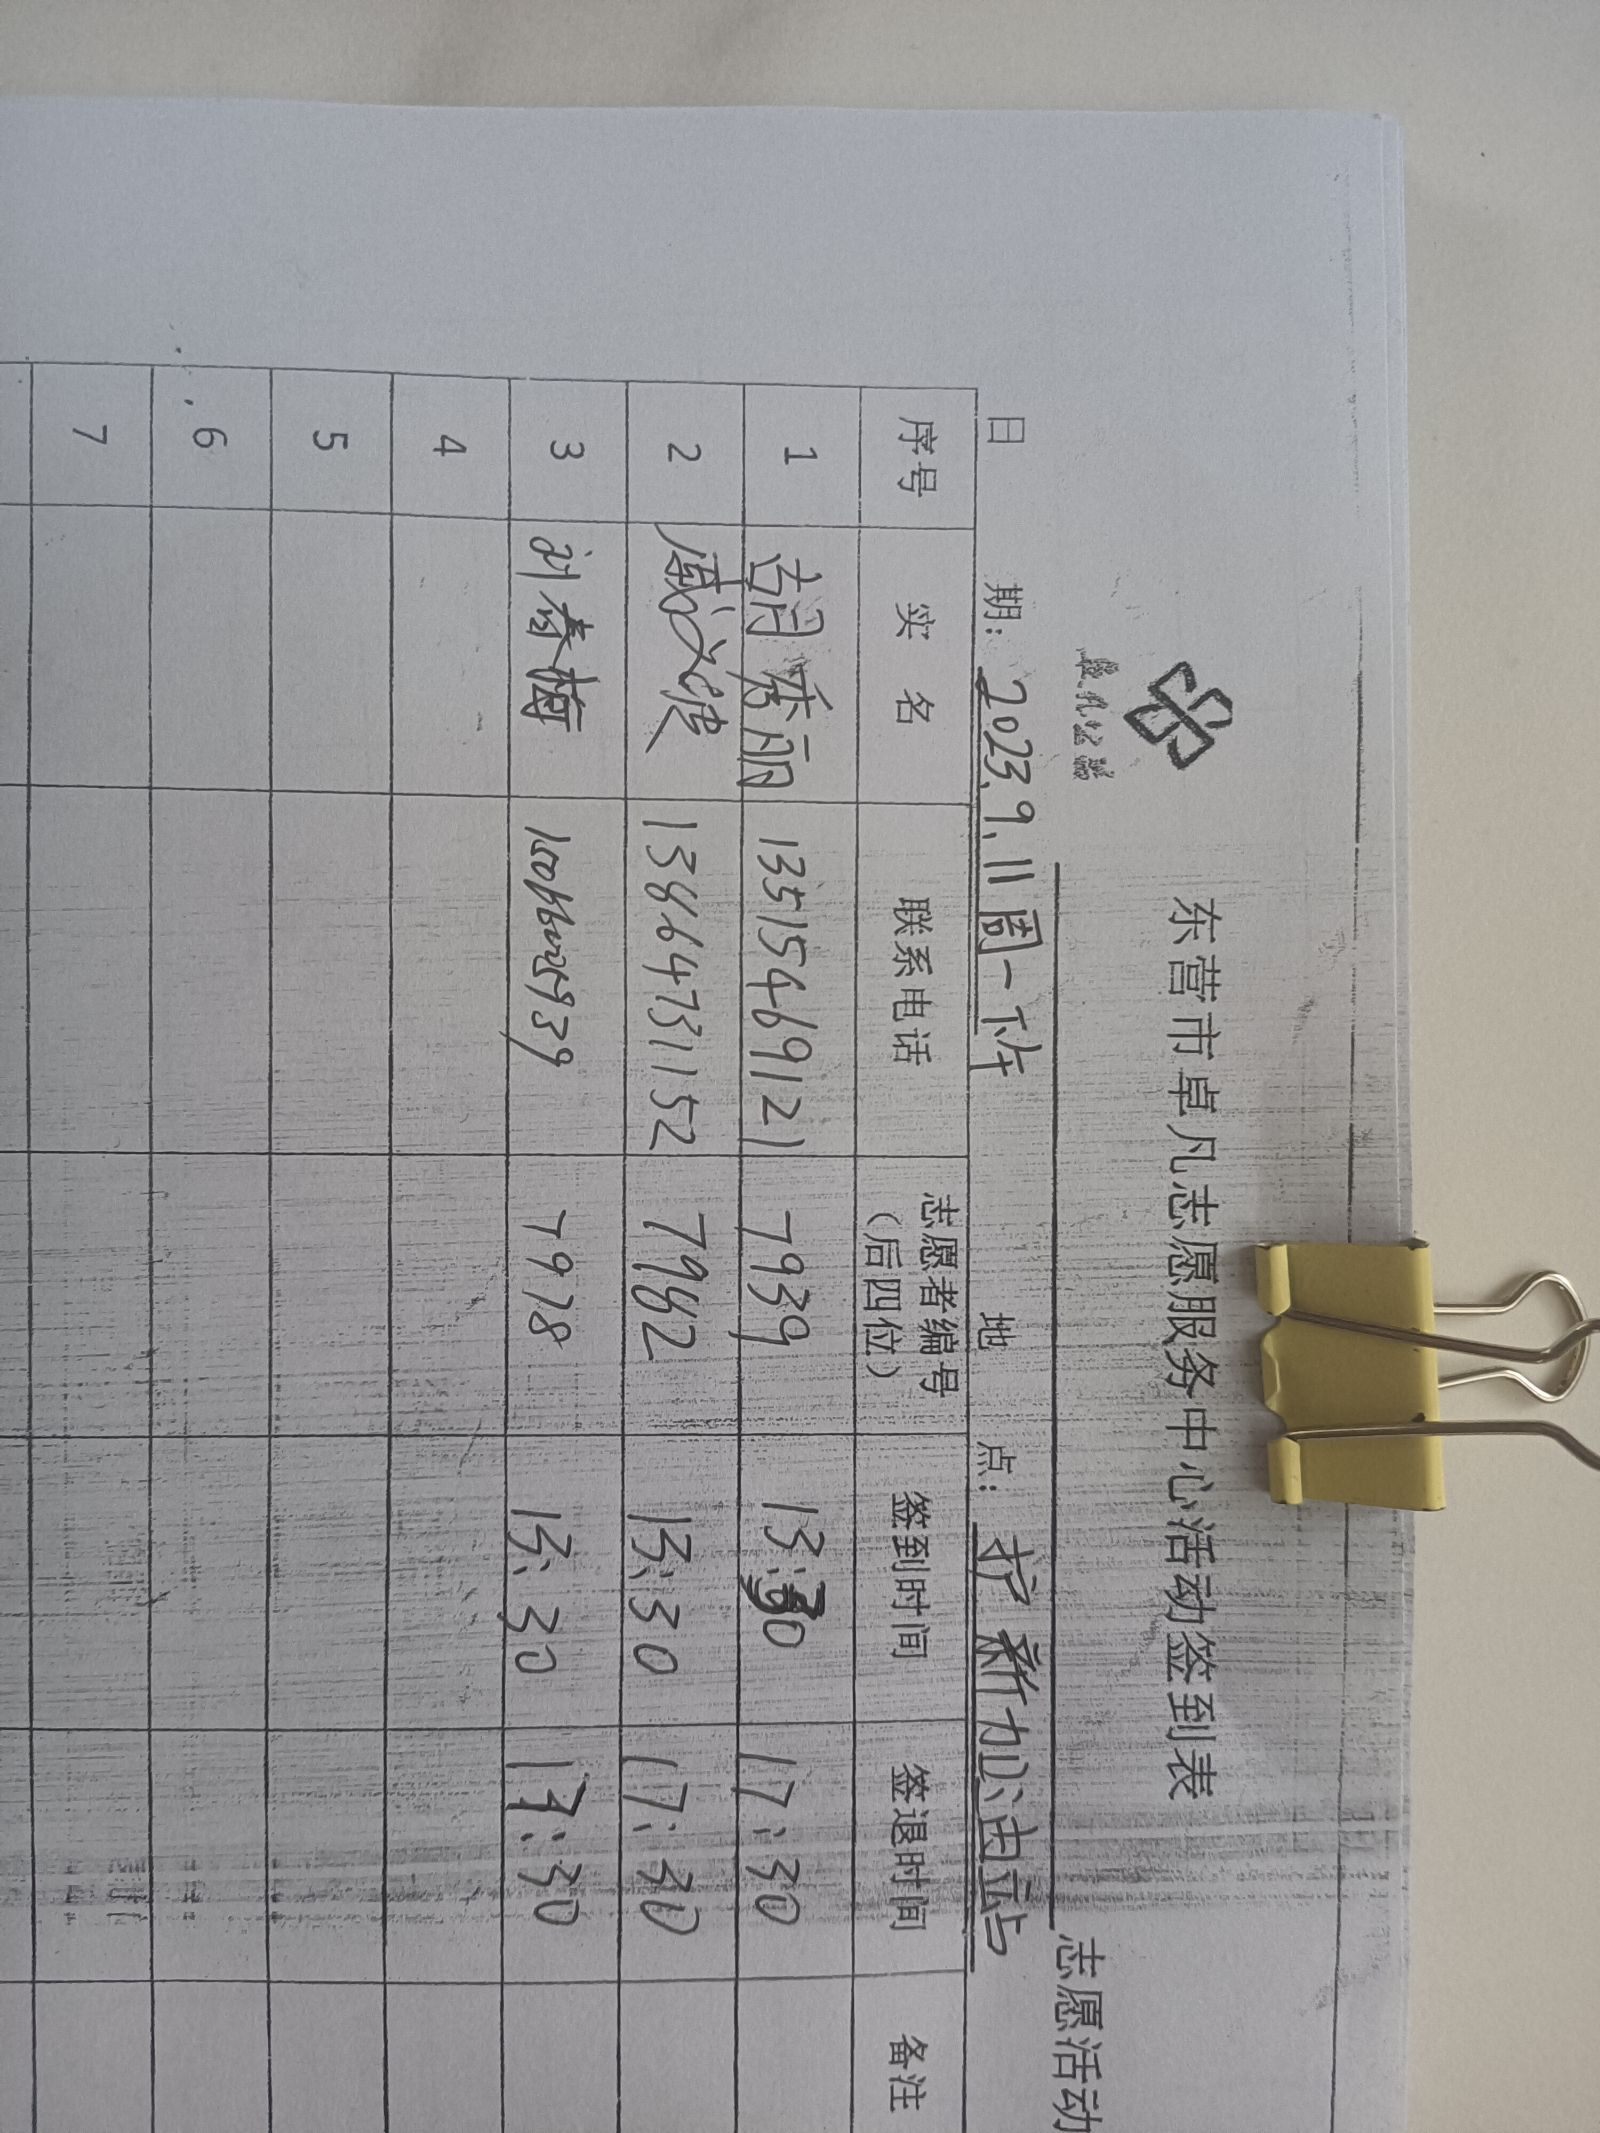 卓凡公益
东营市卓凡志愿服务中心活动签到表
志愿活动
日 期: 2023.9.11周一下午 地 点: 护新加油站
序号 实 名 联系电话 志愿者编号（后四位） 签到时间 签退时间 备注
1 胡秀丽 13515469121 7939 13:30 17:30
2 13864731152 7962 13:30 17:30
3 刘春梅 7978 13:30 17:30
4
5
6
7